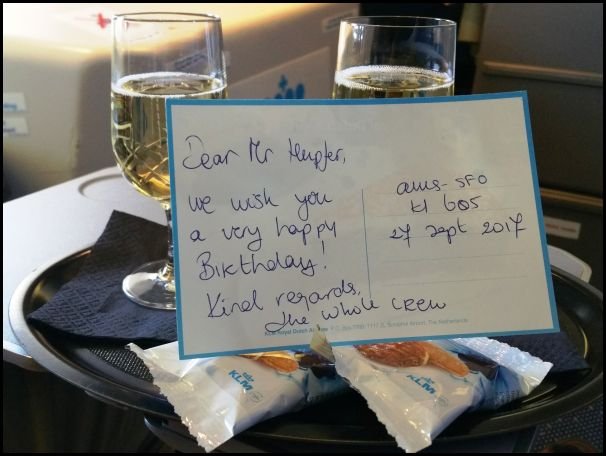 Dear Mr Hupfer,
we wish you
a very happy
Birthday!
Kind regards,
the whole crew
ams-SFO
kl 605
27 sept 2017
Royal Dutch P.O. Box 7700, 1117 ZL Schiphol Airport, The Netherlands
KLM
KLM